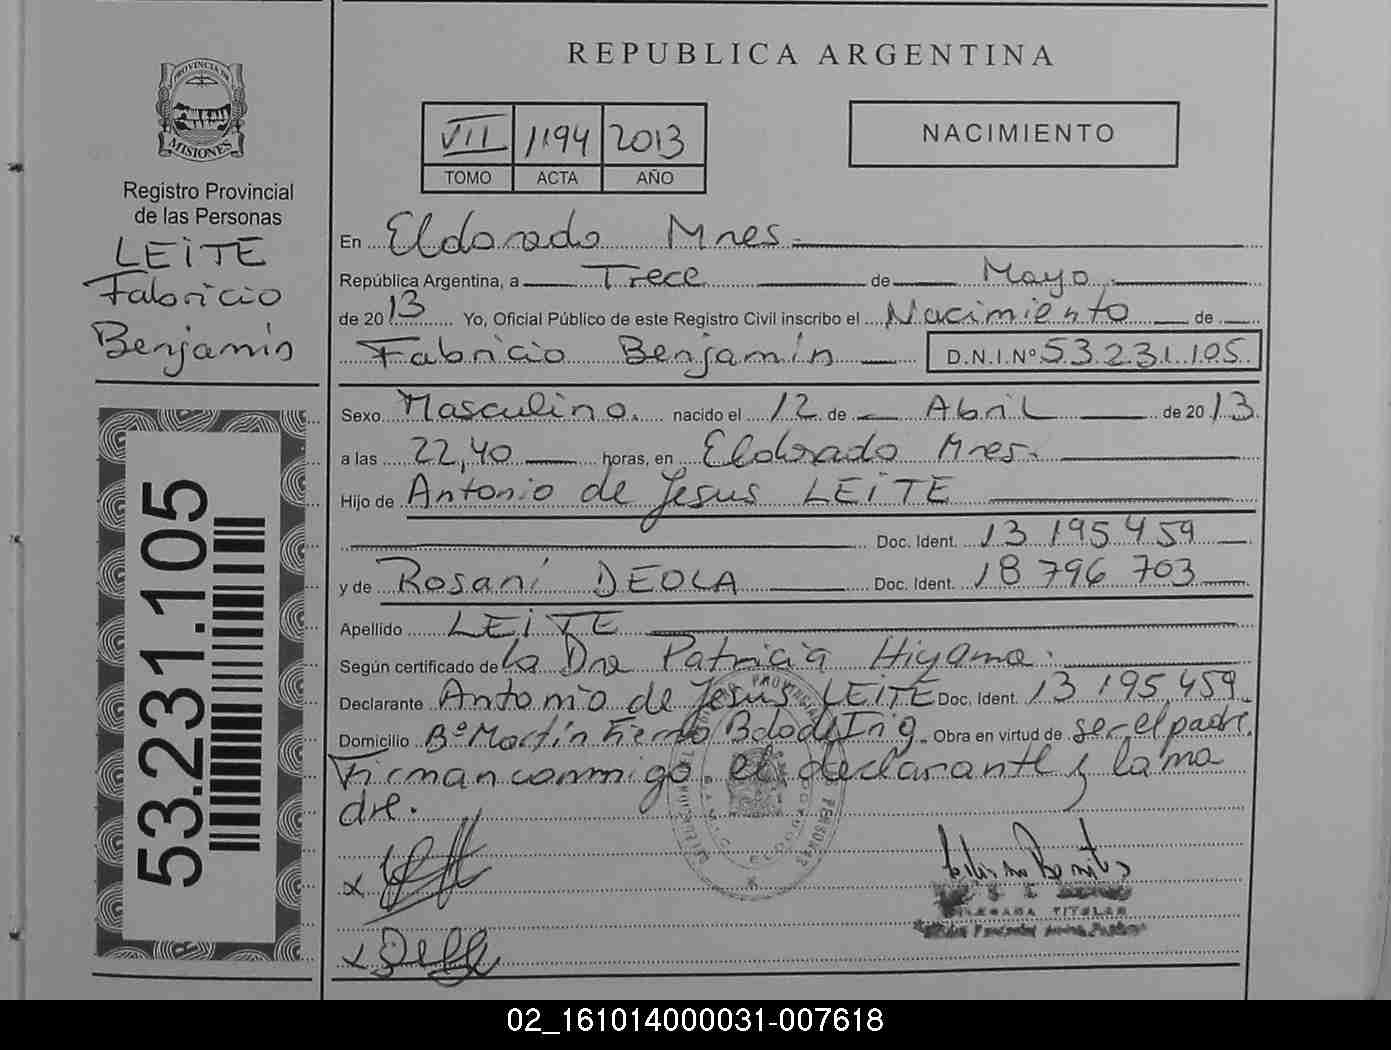 REPUBLICA ARGENTINA
PROVINCIA DE
MISIONES
Registro Provincial
de las Personas
LEiTE
Fabricio
Benjamín
53.231.105
VII 1194 2013
TOMO ACTA AÑO
NACIMIENTO
En Eldorado Mnes.
República Argentina, a Trece de Mayo
de 2013 Yo, Oficial Público de este Registro Civil inscribo el Nacimiento de
Fabricio Benjamín D.N.I.Nº 53231.105
Sexo Masculino. nacido el 12 de Abril de 2013
a las 22,40 horas, en Eldorado Mnes.
Hijo de Antonio de Jesus LEiTE
Doc. Ident. 13 195 459
y de Rosani DEOLA Doc. Ident. 18 796 703
Apellido LEiTE
Según certificado de la Dra Patricia Hiyama.
Declarante Antonio de Jesus LEITE Doc. Ident. 13 195 459
Domicilio Bº Martín Fierro Eldo Obra en virtud de ser el padre.
Firman conmigo el declarante y la ma
dre.
TITULAR
02_161014000031-007618